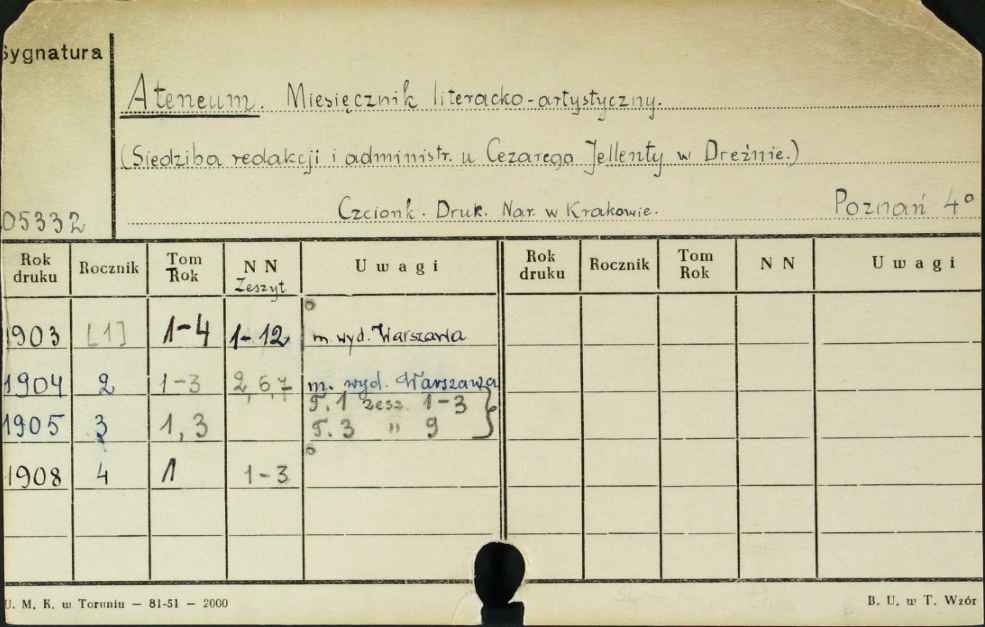 Sygnatura
Ateneum. Miesięcznik literacko-artystyczny.
(Siedziba redakcji i administr. u Cezarego Jellenty w Dreźnie.)
05332 Czcionk. Druk. Nar. w Krakowie. Poznań 4°
Rok druku Rocznik Tom Rok N N Zeszyt Uwagi Rok druku Rocznik Tom Rok N N Uwagi
1903 [1] 1-4 1-12 m. wyd. Warszawa
1904 2 1-3 2, 6, 7 m. wyd. Warszawa
T. 1 zesz. 1-3
1905 3 1, 3 T. 3 " 9
1908 4 1 1-3
U. M. K. w Toruniu — 81-51 — 2000 B. U. w T. Wzór